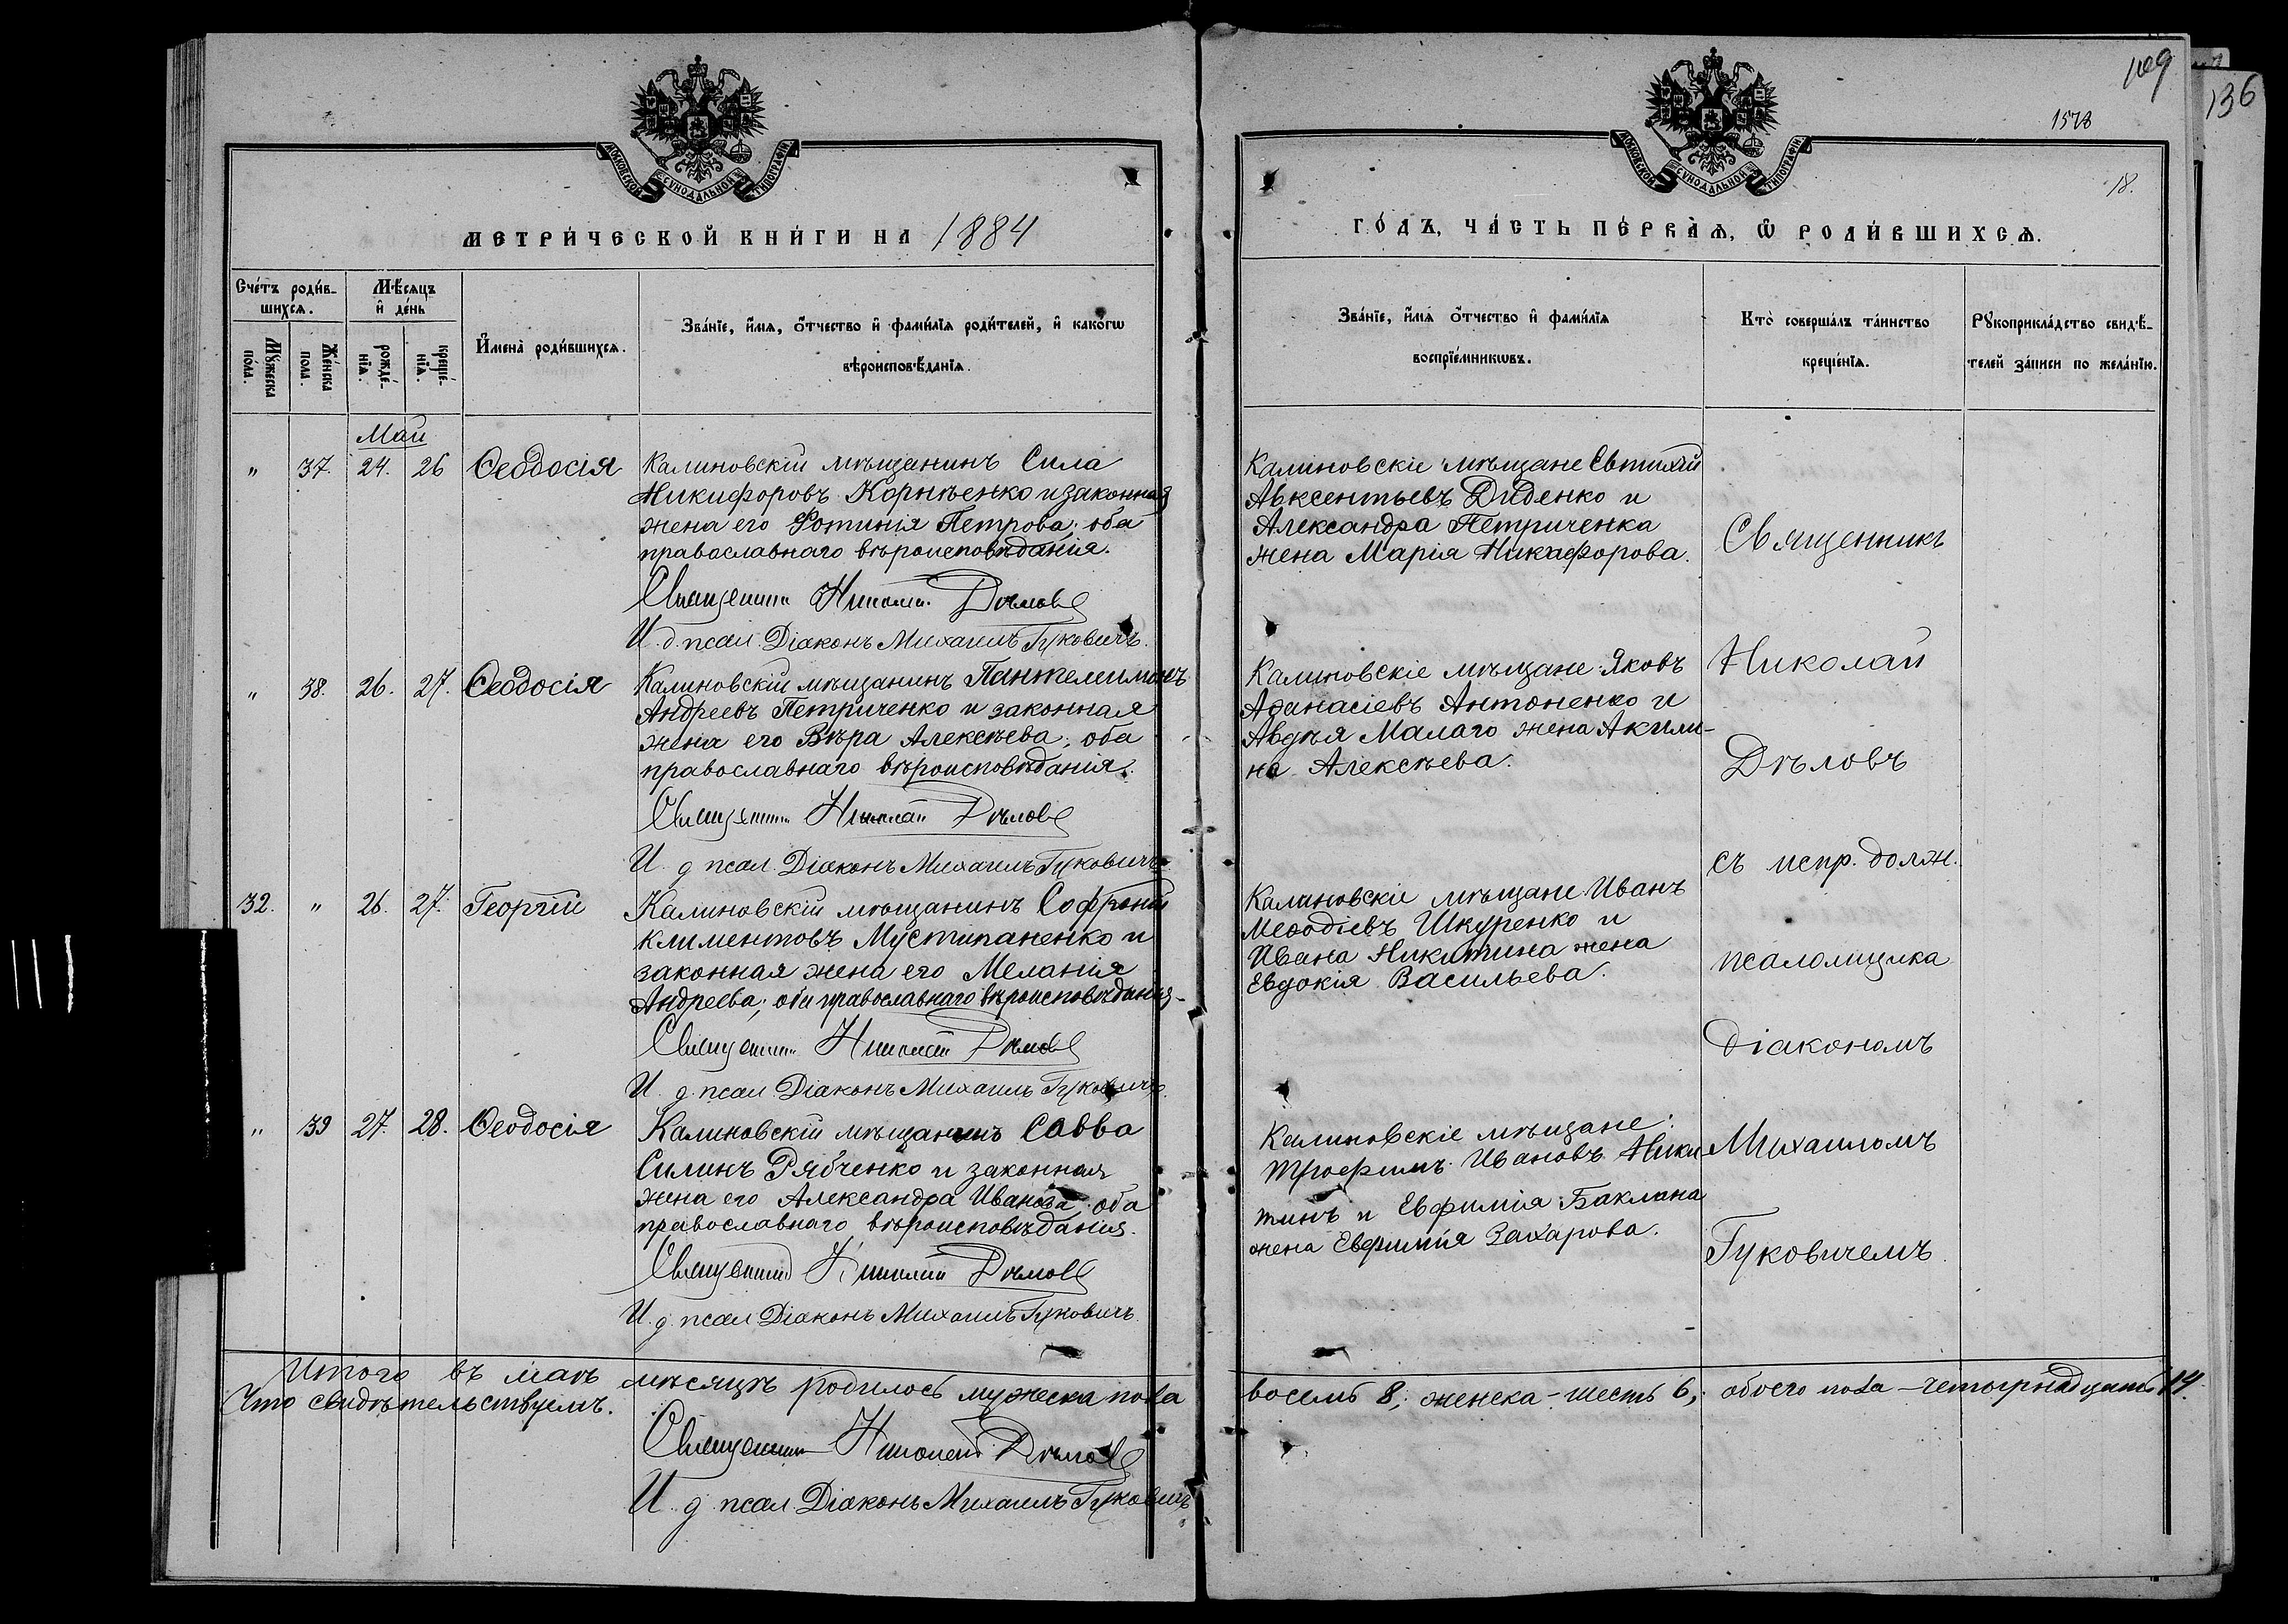 109
136
1578
18.
МОСКОВСКОЙ СУНОДАЛЬНОЙ ТИПОГРАФІИ
МОСКОВСКОЙ СУНОДАЛЬНОЙ ТИПОГРАФІИ
МЕТРИ́ЧЕСКОЙ КНИ́ГИ НА 1884
ГО́ДЪ, ЧА́СТЬ ПЕ́РВАѦ, Ѡ РОДИ́ВШИХСѦ.
Сче́тъ роди́вшихсѧ.
Му́жеска пола.
Же́нска пола.
Мѣ́сяцъ и де́нь
рожде́нїѧ.
креще́нїѧ.
И́мена̀ роди́вшихсѧ.
Зва́нїе, и́мѧ, о́тчество и фами́лїѧ роди́телей, и како́гѡ
вѣроисповѣ́данїѧ.
Зва́нїе, и́мѧ о́тчество и фами́лїѧ
воспрїе́мникѡвъ.
Кто̀ соверша́лъ та́инство
креще́нїѧ.
Рукоприкла́дство свидѣ́-
телей за́писи по жела́нїю.
Май
" 37. 24. 26 Ѳеодосія
Калиновскій мѣщанинъ Сила
Никифоровъ Корнѣенко и законная
жена его Фотинія Петрова; оба
православнаго вѣроисповѣданія.
Священникъ Николай Дѣловъ
И. д. псал. Діаконъ Михаилъ Гуковичъ.
Калиновскіе мѣщане Евтихій
Авксентьевъ Диденко и
Александра Петриченка
жена Марія Никифорова.
" 38. 26. 27. Ѳеодосія
Калиновскій мѣщанинъ Пантелимонъ
Андреевъ Петриченко и законная
жена его Вѣра Алексѣева; оба
православнаго вѣроисповѣданія.
Священникъ Николай Дѣловъ
И. д псал. Діаконъ Михаилъ Гуковичъ
Калиновскіе мѣщане Яковъ
Аѳанасіевъ Антоненко и
Авдѣя Малаго жена Акили-
на Алексѣева.
32. " 26. 27. Георгій
Калиновскій мѣщанинъ Софроній
Климентовъ Мустипаненко и
законная жена его Меланія
Андреева; оба православнаго вѣроисповѣданія.
Священникъ Николай Дѣловъ
И. д. псал Діаконъ Михаилъ Гуковичъ.
Калиновскіе мѣщане Иванъ
Меѳодіевъ Шкуренко и
Ивана Никитина жена
Евдокія Васильева.
" 39 27. 28. Ѳеодосія
Калиновскій мѣщанинъ Савва
Силинъ Рябченко и законная
жена его Александра Иванова, оба
православнаго вѣроисповѣданія.
Священникъ Николай Дѣловъ
И. д. псал Діаконъ Михаилъ Гуковичъ.
Калиновскіе мѣщане:
Трофимъ Ивановъ Ники
тинъ и Евфимія Баклана
жена Евфимія Захарова.
Священникъ
Николай
Дѣловъ
съ испр. долж.
псаломщика
діакономъ
Михаиломъ
Гуковичемъ.
Итого въ маѣ мѣсяцѣ родилось мужеска пола восемь 8; женска - шесть 6; обоего пола - четырнадцать 14.
Что свидѣтельствуемъ.
Священникъ Николай Дѣловъ
И. д псал. Діаконъ Михаилъ Гуковичъ